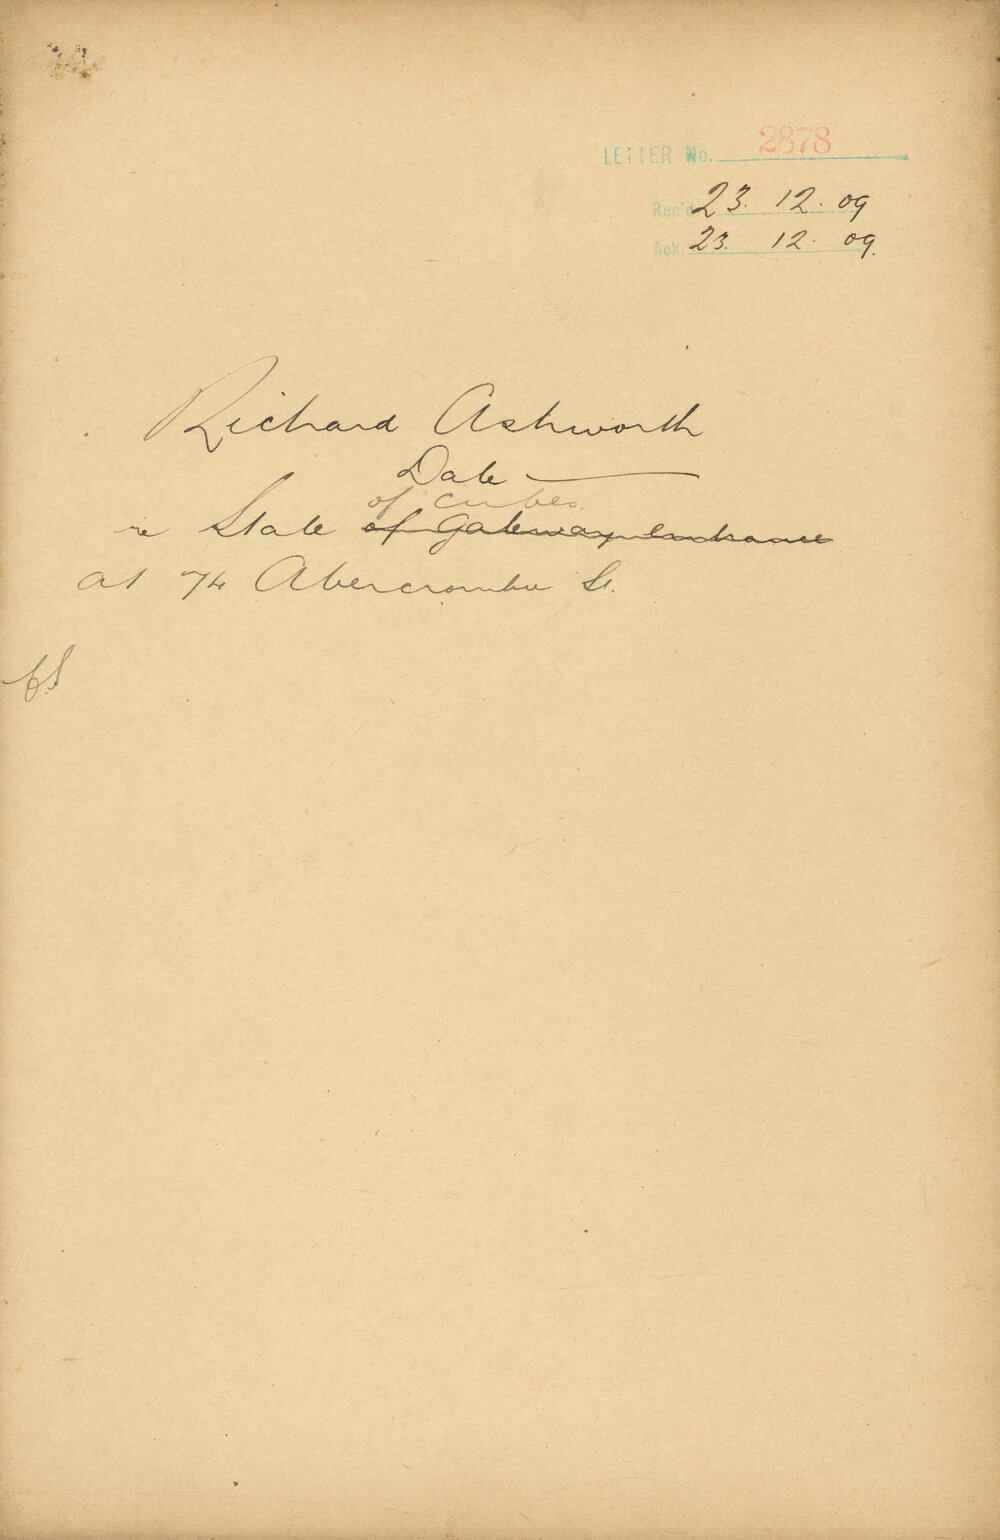 LETTER No. 2878
Rec'd 23. 12. 09
Ack. 23. 12. 09.
Richard Ashworth
Date
of cubes.
re State of Gateway entrance
at 74 Abercrombie St.